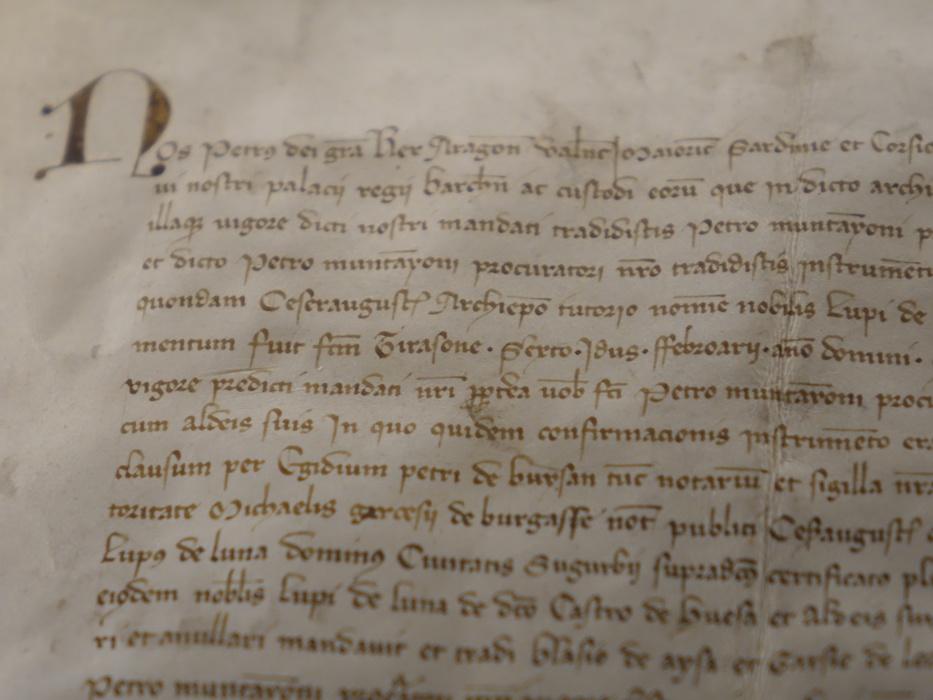 Nos Petrus dei gra Rex Aragon Valnc Maioric Sardinie et Corsic
ui nostri palacii regii barchn ac custodi eorū que in dicto archi
illaqz vigore dicti nostri mandati tradidistis Petro muntayoni p
et dicto Petro muntayoni procuratori nro tradidistis instrumentu
quondam Ceseraugust Archiepo tutorio nomine nobilis Lupi de
mentum fuit fcm Tirasone · Sexto · Idus · ffebroarii · año domini ·
vigore predicti mandati nri vob Petro muntayoni proc
cum aldeis suis In quo quidem confirmacionis instrumēto er
clausum per Egidium petri de bursan tūc notariū et sigilla nr
toritate Michaelis garcesii de burgasse not publici Cesaugust
Lupus de luna dominus Ciuitatis Sugurbii supradcō certificato pl
eiusdem noblis Lupi de luna de dco Castro de huesa et aldeis su
ri et anullari mandauit et tradi blasio de aysa et Garsie de
Petro muntayoni